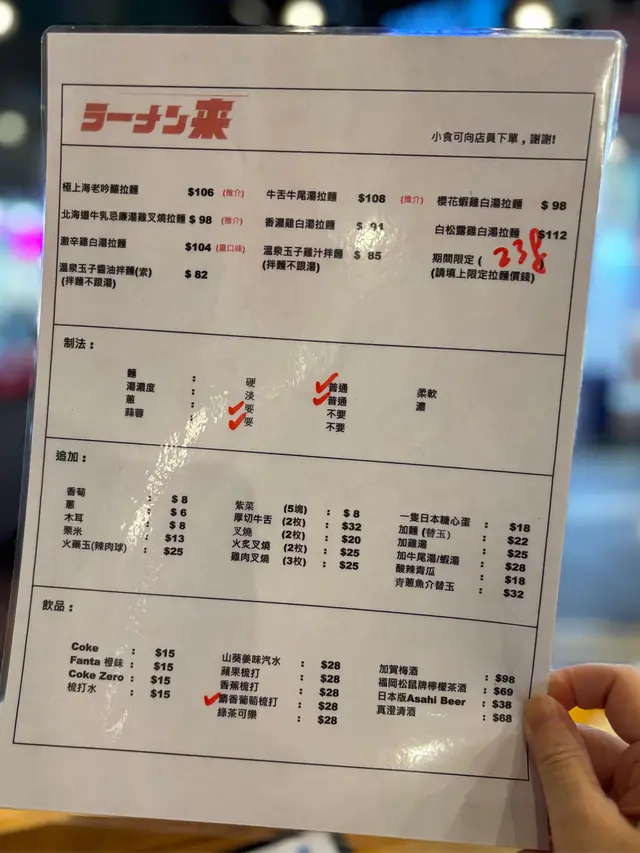 ラーメン来
小食可向店員下單，謝謝!
極上海老吟釀拉麵 $106 (推介) 牛舌牛尾湯拉麵 $108 (推介) 櫻花蝦雞白湯拉麵 $ 98
北海道牛乳忌廉湯雞叉燒拉麵 $ 98 (推介) 香濃雞白湯拉麵 $ 91 白松露雞白湯拉麵 $112
激辛雞白湯拉麵 $104 (重口味) 溫泉玉子雞汁拌麵 $ 85 期間限定 ( 238
(拌麵不跟湯) (請填上限定拉麵價錢)
溫泉玉子醬油拌麵(素) $ 82
(拌麵不跟湯)
制法：
麵 : 硬 普通 柔軟
湯濃度 : 淡 普通 濃
蔥 : 要 不要
蒜蓉 : 要 不要
追加：
香荀 : $ 8 紫菜 (5塊) : $ 8 一隻日本糖心蛋 : $18
蔥 : $ 6 厚切牛舌 (2枚) : $32 加麵 (替玉) : $22
木耳 : $ 8 叉燒 (2枚) : $20 加雞湯 : $25
粟米 : $13 火炙叉燒 (2枚) : $25 加牛尾湯/蝦湯 : $28
火藥玉(辣肉球) : $25 雞肉叉燒 (3枚) : $25 酸辣青瓜 : $18
青蔥魚介替玉 : $32
飲品：
Coke : $15 山葵姜味汽水 : $28 加賀梅酒 : $98
Fanta 橙味 : $15 蘋果梳打 : $28 福岡松鼠牌檸檬茶酒 : $69
Coke Zero : $15 香蕉梳打 : $28 日本版Asahi Beer : $38
梳打水 : $15 麝香葡萄梳打 : $28 真澄清酒 : $68
綠茶可樂 : $28